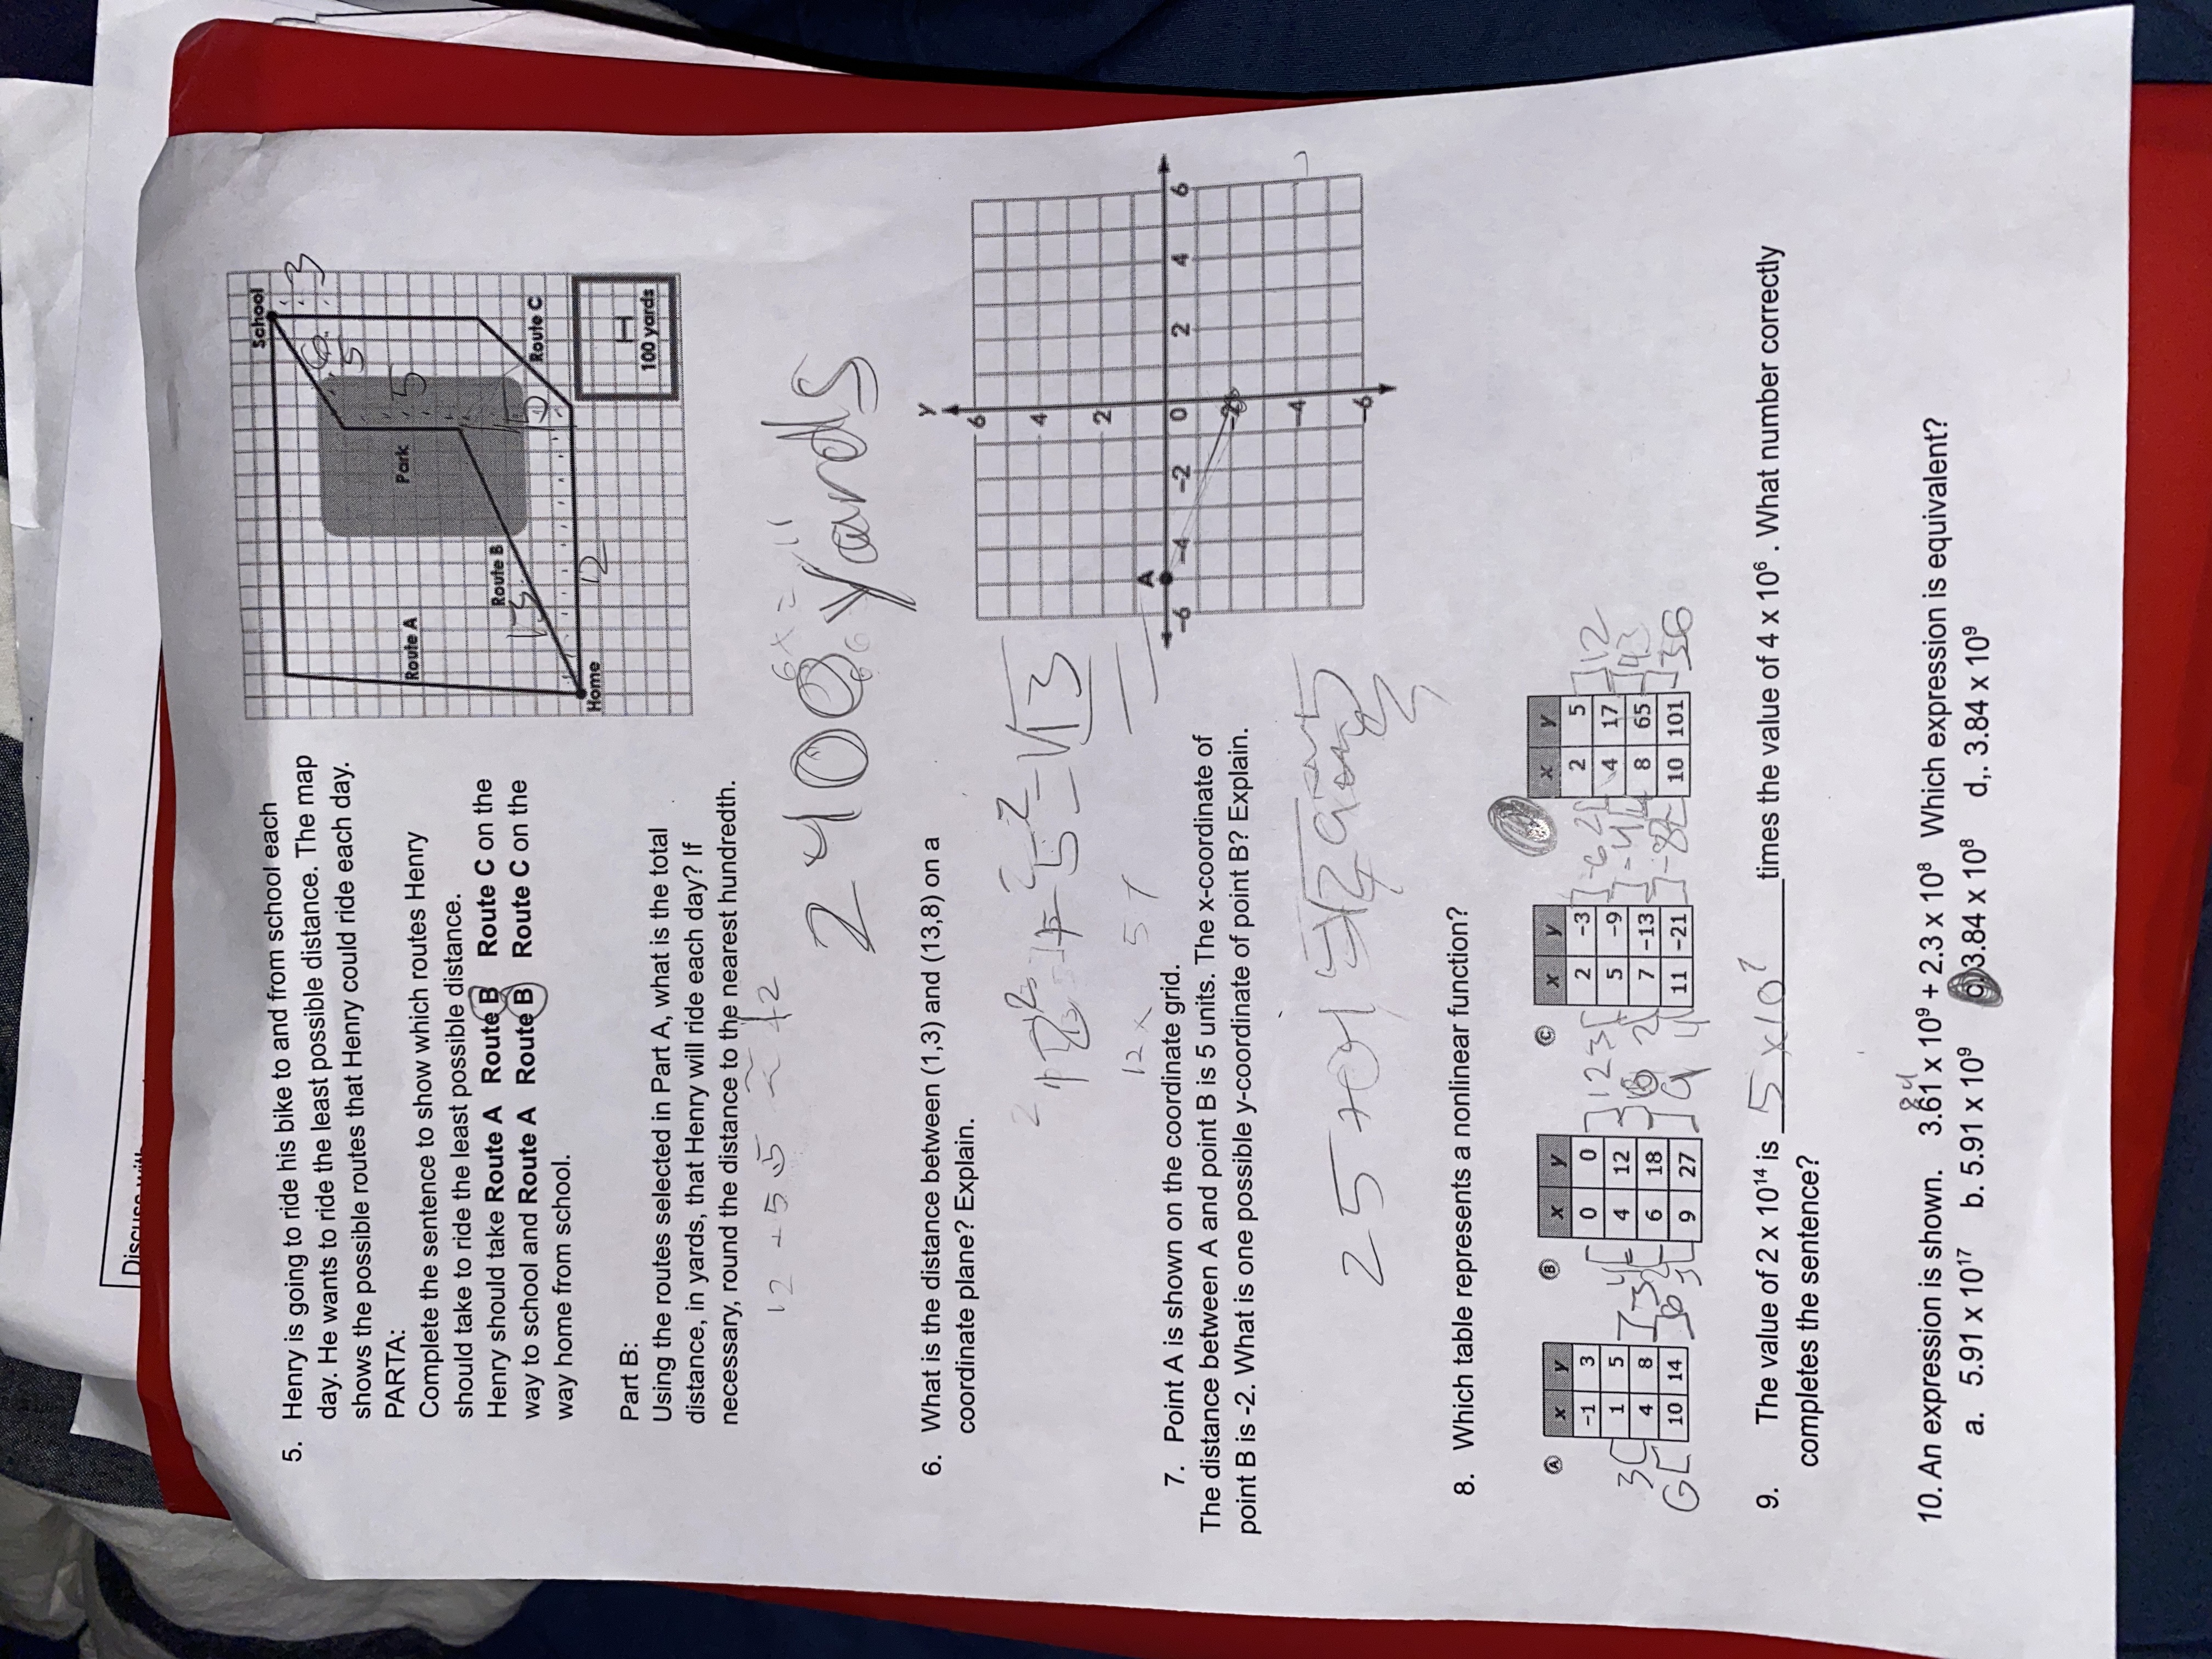 Discuss with
5. Henry is going to ride his bike to and from school each
day. He wants to ride the least possible distance. The map
shows the possible routes that Henry could ride each day.
PARTA:
Complete the sentence to show which routes Henry
should take to ride the least possible distance.
Henry should take Route A Route B Route C on the
way to school and Route A Route B Route C on the
way home from school.
School
3
6
5
Route A
Park
5
Route B
13
5
Route C
Home
12
100 yards
Part B:
Using the routes selected in Part A, what is the total
distance, in yards, that Henry will ride each day? If
necessary, round the distance to the nearest hundredth.
2400 yards
6. What is the distance between (1,3) and (13,8) on a
coordinate plane? Explain.
12² + 5² = √13
12 x 5
7. Point A is shown on the coordinate grid.
The distance between A and point B is 5 units. The x-coordinate of
point B is -2. What is one possible y-coordinate of point B? Explain.
y
6
4
2
A
-6 -4 -2 0 2 4 6
-2
-4
-6
25 +
8. Which table represents a nonlinear function?
A x y
-1 3
1 5
4 8
10 14
3
6
B x y
0 0
4 12
6 18
9 27
12
9
C x y
2 -3
5 -9
7 -13
11 -21
3
2
4
-6
-4
-8
x y
2 5
4 17
8 65
10 101
12
43
36
9. The value of 2 x 10¹⁴ is 5 x 10⁷ times the value of 4 x 10⁶ . What number correctly
completes the sentence?
84
10. An expression is shown. 3.61 x 10⁹ + 2.3 x 10⁸ Which expression is equivalent?
a. 5.91 x 10¹⁷ b. 5.91 x 10⁹ c. 3.84 x 10⁸ d,. 3.84 x 10⁹